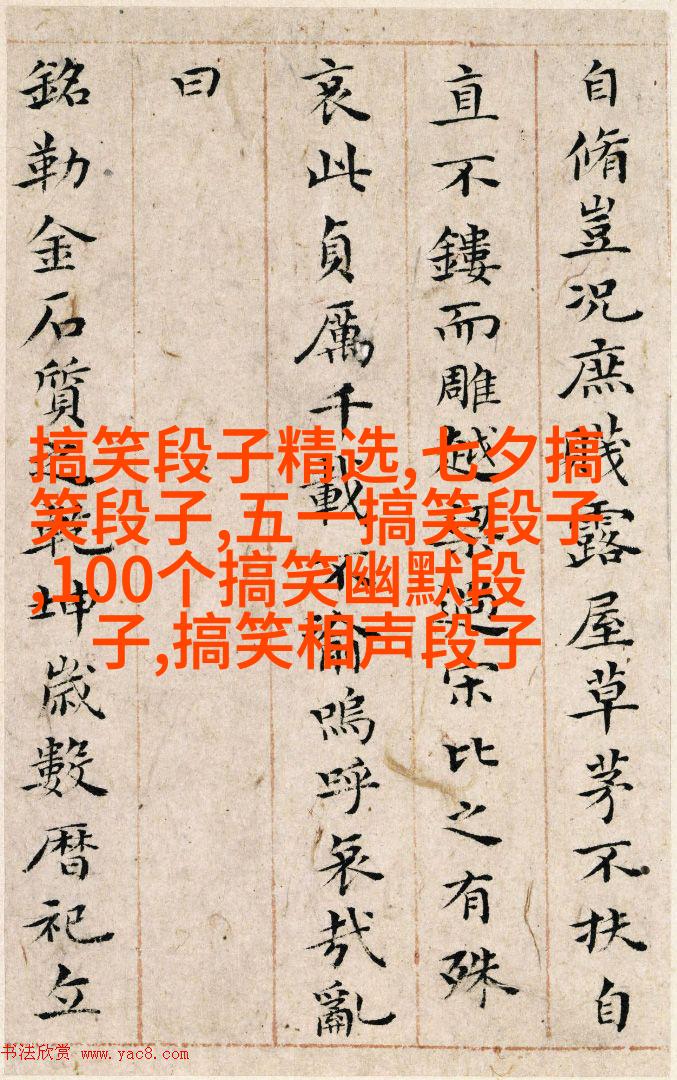 自脩豈況庶賤露屋草茅不扶自
直不鏤而雕越梁過宋比之有殊
哀此貞厲千載不渝嗚呼哀哉亂
曰
銘勒金石質乾坤歲數曆祀立
搞笑段子精选,七夕搞
笑段子,五一搞笑段子
,100个搞笑幽默段
子,搞笑相声段子
书法欣赏 www.yac8.com